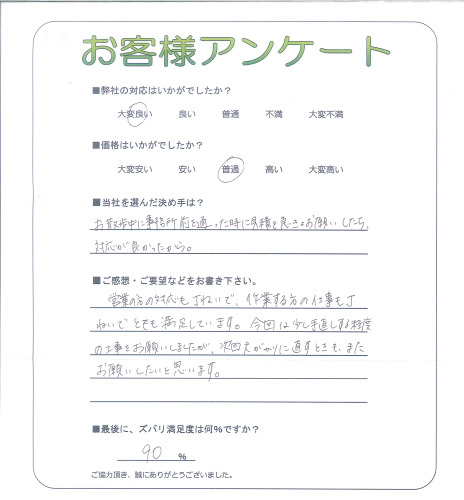 お客様アンケート
■弊社の対応はいかがでしたか？
大変良い 良い 普通 不満 大変不満
■価格はいかがでしたか？
大変安い 安い 普通 高い 大変高い
■当社を選んだ決め手は？
お散歩中に事務所前を通った時に見積をお願いしたら、
対応が良かったから。
■ご感想・ご要望などをお書き下さい。
営業の方の対応も丁ねいで、作業する方の仕事も丁
ねいでとても満足しています。今回は少し手直しする程度
の工事をお願いしましたが、次回大がかりに直すときも、また
お願いしたいと思います。
■最後に、ズバリ満足度は何%ですか？
90 %
ご協力頂き、誠にありがとうございました。